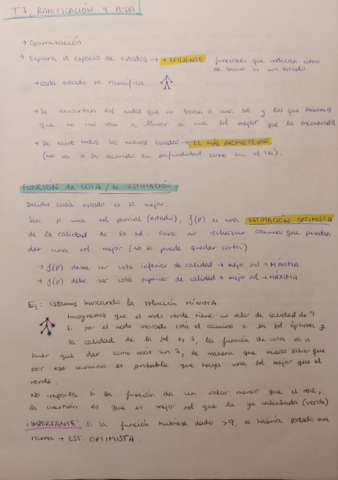 T7: RAMIFICACIÓN Y PODA
→ Optimización
→ Explora el espacio de estados → + EFICIENTE funciones que indican como de bueno es un estado
→ cada estado se ramifica
→ Se descartan los nodos que no llevan a una sol y los que sabemos
que no nos van a llevar a una sol mejor que la encontrada
→ De entre todos los nuevos estados → EL MÁS PROMETEDOR
(no va a ser recorrido en profundidad como en el T6).
FUNCIÓN DE COTA / DE ESTIMACIÓN
Decidir cuál estado es el mejor.
Sea p una sol parcial (estado), f(p) es una ESTIMACIÓN OPTIMISTA
de la calidad de la sol. Para no rechazar caminos que puedan
dar una sol mejor (no se puede quedar corta)
→ f(p) debe ser cota inferior de calidad → mejor sol → MÍNIMA
→ f(p) debe ser cota superior de calidad → mejor sol → MÁXIMA
Ej: Estamos buscando la solución MÍNIMA
Imaginemos que el nodo verde tiene un valor de calidad de 9
Si por el nodo morado está el camino a la sol óptima y
la calidad de la sol es 7, la función de cota va a
tener que dar como más un 7, de manera que pueda saber que
por ese camino es probable que haya una sol mejor que el
verde.
No importa si la función da un valor menor que el real,
la cuestión es que es mejor sol que la ya calculada (verde)
¡IMPORTANTE! Si la función hubiese dado >9, se habría podado esa
rama → EST. OPTIMISTA.